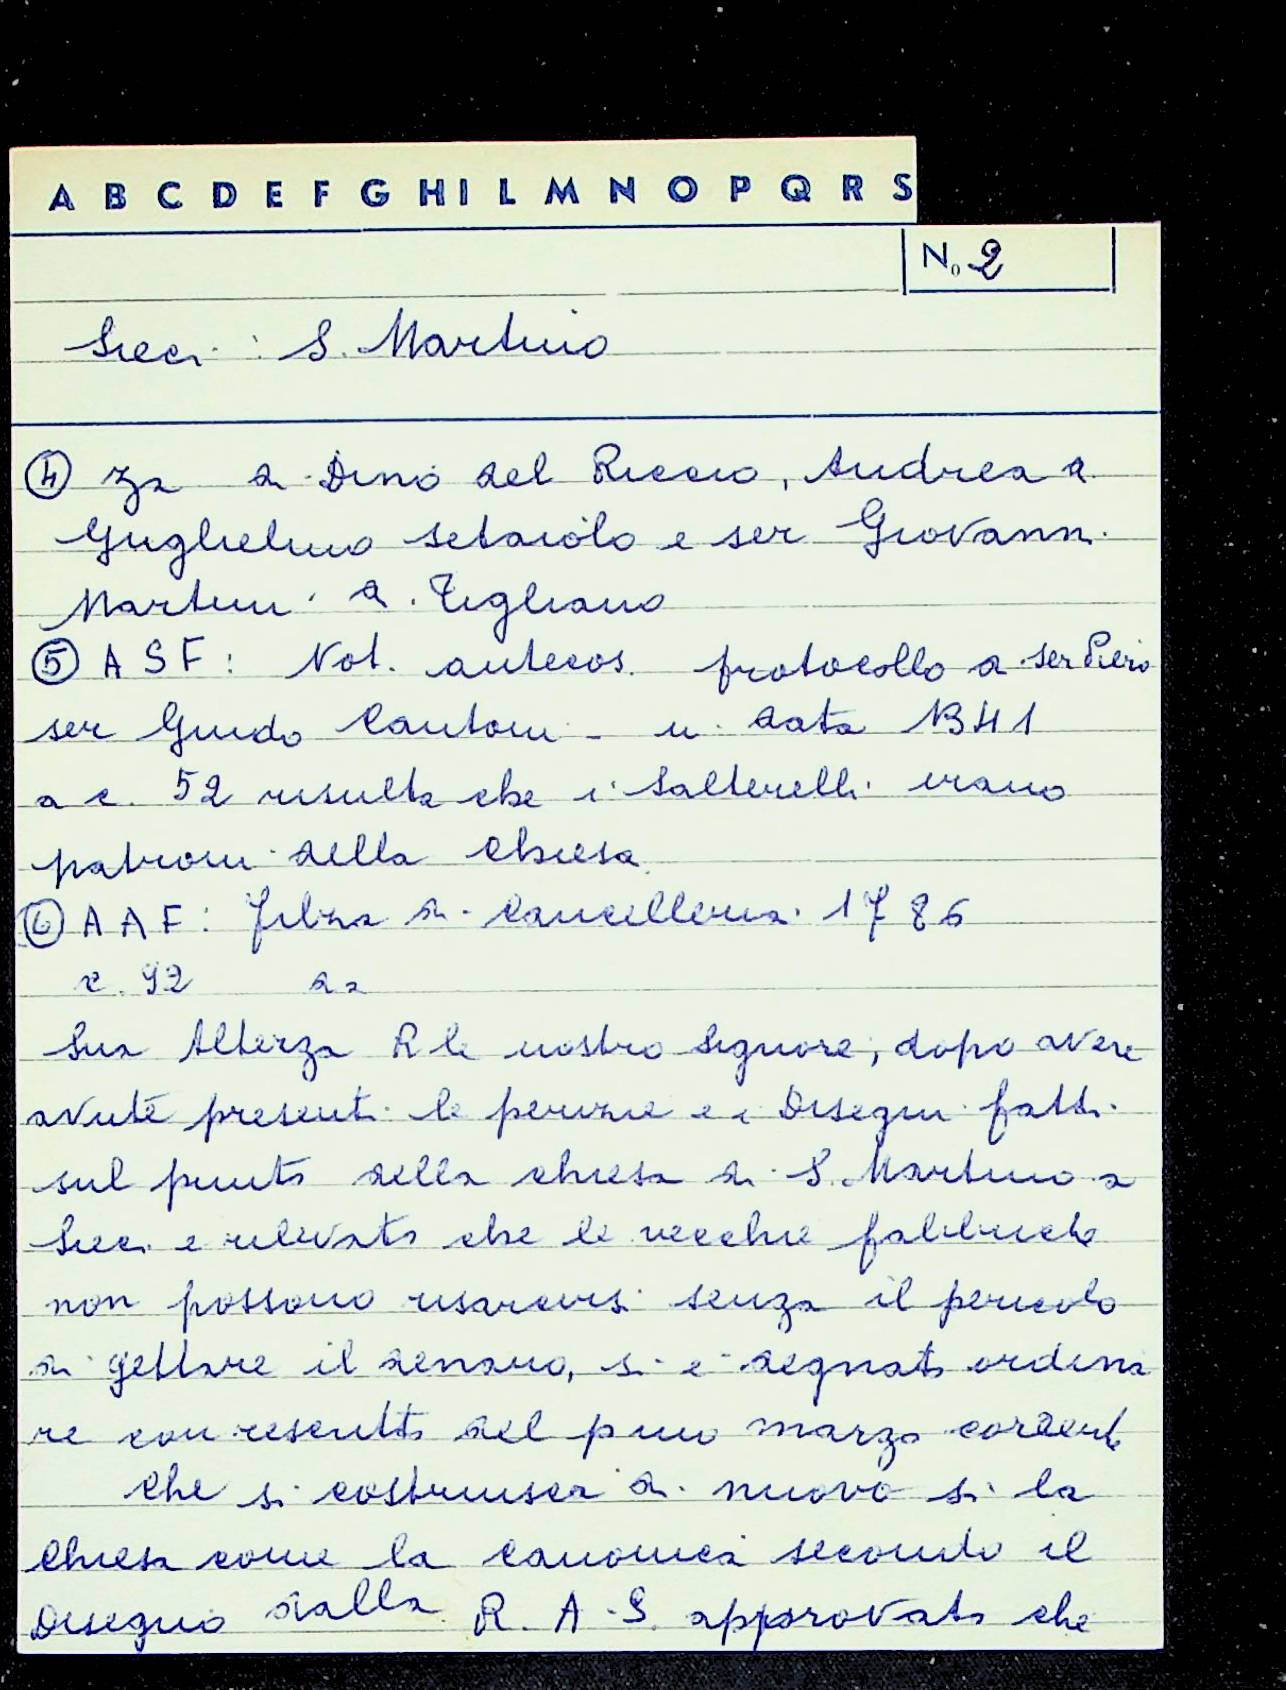 A B C D E F G H I L M N O P Q R S
No 2
Sieci : S. Martino
④ za di Dino del Riccio, Andrea di
Guglielmo setaiolo e ser Giovanni
Martini di Tigliano
⑤ ASF: Not. antecos. protocollo di ser Piero
ser Guido Cantoni - in data 1341
a c. 52 risulta che i Salterelli erano
patroni della chiesa
⑥ AAF: filza di Cancelleria 1786
c. 92
Sua Altezza Rle nostro Signore, dopo avere
avute presenti le perizie e i Disegni fatti
sul punto della chiesa di S. Martino a
Sieci e rilevato che le vecchie fabbriche
non possono risarcirsi senza il pericolo
di gettare il denaro, si è degnato ordina
re con rescritto del pmo marzo corrente
che si costruisca di nuovo sì la
Chiesa come la canonica secondo il
Disegno dalla R. A. S. approvato che